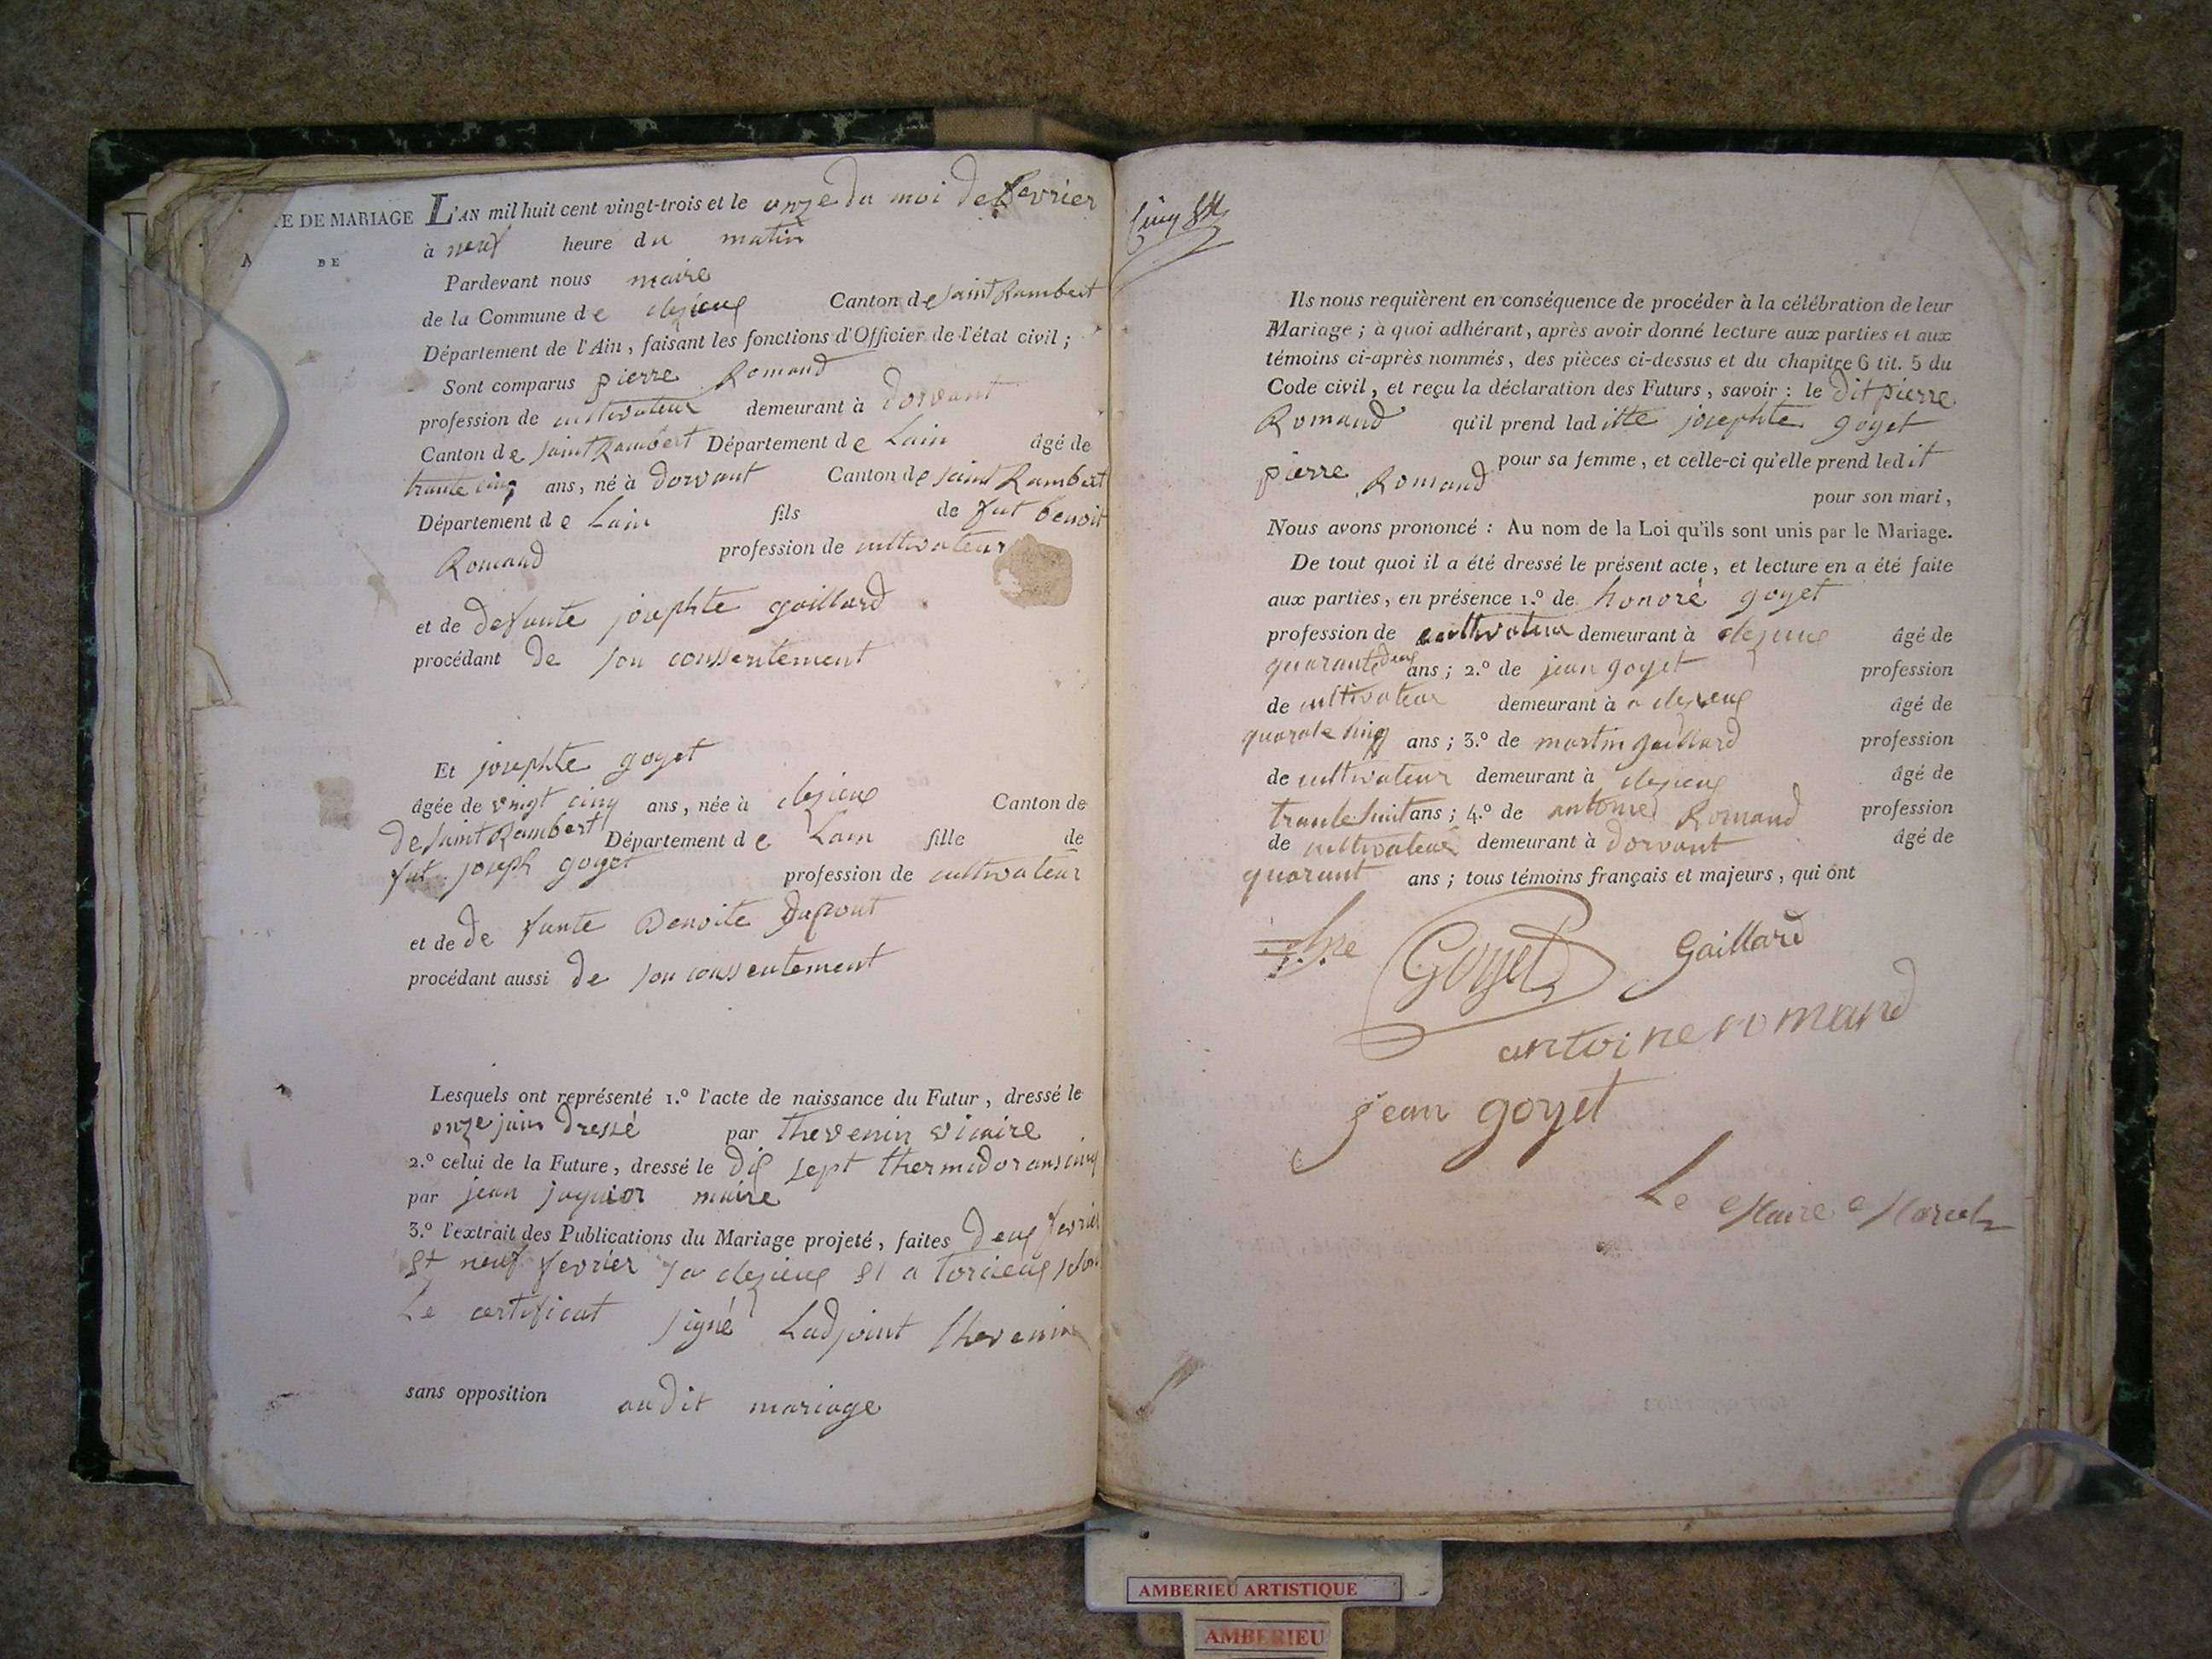 TE DE MARIAGE L'AN mil huit cent vingt-trois et le onze du moi de fevrier
A DE
à neuf heure du matin
Pardevant nous maire
de la Commune de clezieux Canton de saint Rambert
Département de l'Ain, faisant les fonctions d'Officier de l'état civil ;
Sont comparus pierre Romand
profession de cultivateur demeurant à dorvant
Canton de saint Rambert Département de Lain âgé de
trante cinq ans, né à dorvant Canton de saint Rambert
Département de Lain fils de fut benoit
Romand profession de cultivateur
et de defunte josephte gaillard
procédant de son conssentement
Et josephte goyet
âgée de vingt cinq ans, née à clezieux Canton de
de saint Rambert Département de Lain fille de
fut joseph goyet profession de cultivateur
et de de funte Benoite Dupont
procédant aussi de son conssentement
Lesquels ont représenté 1.º l'acte de naissance du Futur, dressé le
onze juin dressé par thevenin vicaire
2.º celui de la Future, dressé le dix sept thermidor ans cinq
par jean maire
3.º l'extrait des Publications du Mariage projeté, faites deux fevrier
et neuf fevrier a clezieux et a torcieux
Le certificat signé Ladjoint thevenin
sans opposition audit mariage
Ils nous requièrent en conséquence de procéder à la célébration de leur
Mariage ; à quoi adhérant, après avoir donné lecture aux parties et aux
témoins ci-après nommés, des pièces ci-dessus et du chapitre 6 tit. 5 du
Code civil, et reçu la déclaration des Futurs, savoir : le dit pierre
Romand qu'il prend laditte josephte goyet
pour sa femme, et celle-ci qu'elle prend ledit
pierre Romand
pour son mari,
Nous avons prononcé : Au nom de la Loi qu'ils sont unis par le Mariage.
De tout quoi il a été dressé le présent acte, et lecture en a été faite
aux parties, en présence 1.º de honoré goyet
profession de cultivateur demeurant à clezieux âgé de
quarante deux ans ; 2.º de jean goyet profession
de cultivateur demeurant à a clezieux âgé de
quarate sinq ans ; 3.º de martin gaillard profession
de cultivateur demeurant à clezieux âgé de
trante huit ans ; 4.º de antoine Romand profession
de cultivateur demeurant à dorvant âgé de
quarant ans ; tous témoins français et majeurs, qui ont
Goyet Gaillard
antoine romand
jean goyet
Le Maire
AMBERIEU ARTISTIQUE
AMBERIEU